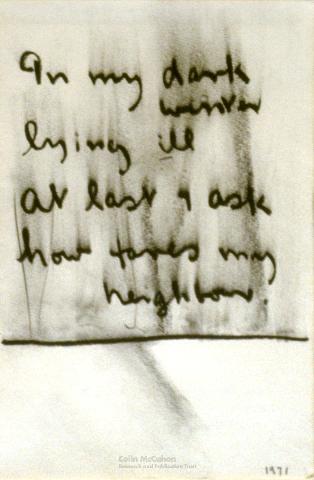 In my dark
winter
lying ill
at last I ask
how fares my
neighbour.
Colin McCahon
Research and Publication Trust
1971